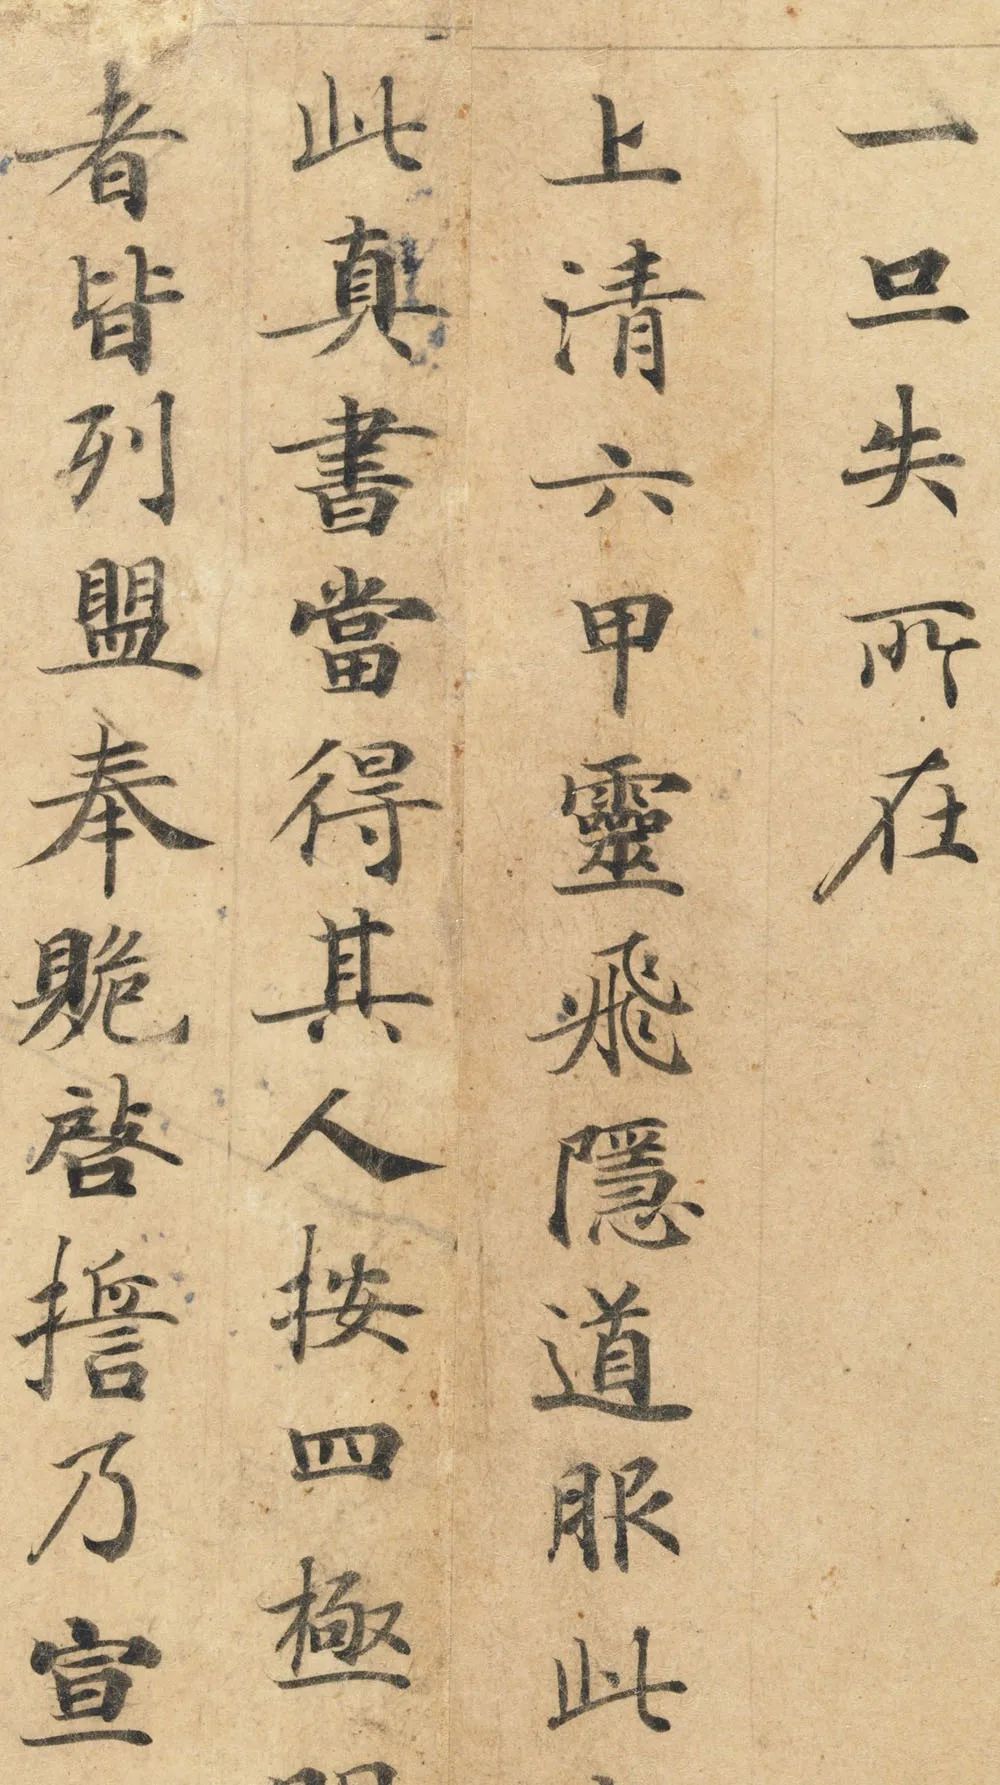 一旦失所在
上清六甲靈飛隱道服此
此真書當得其人按四極
者皆列盟奉䞈啓誓乃宣